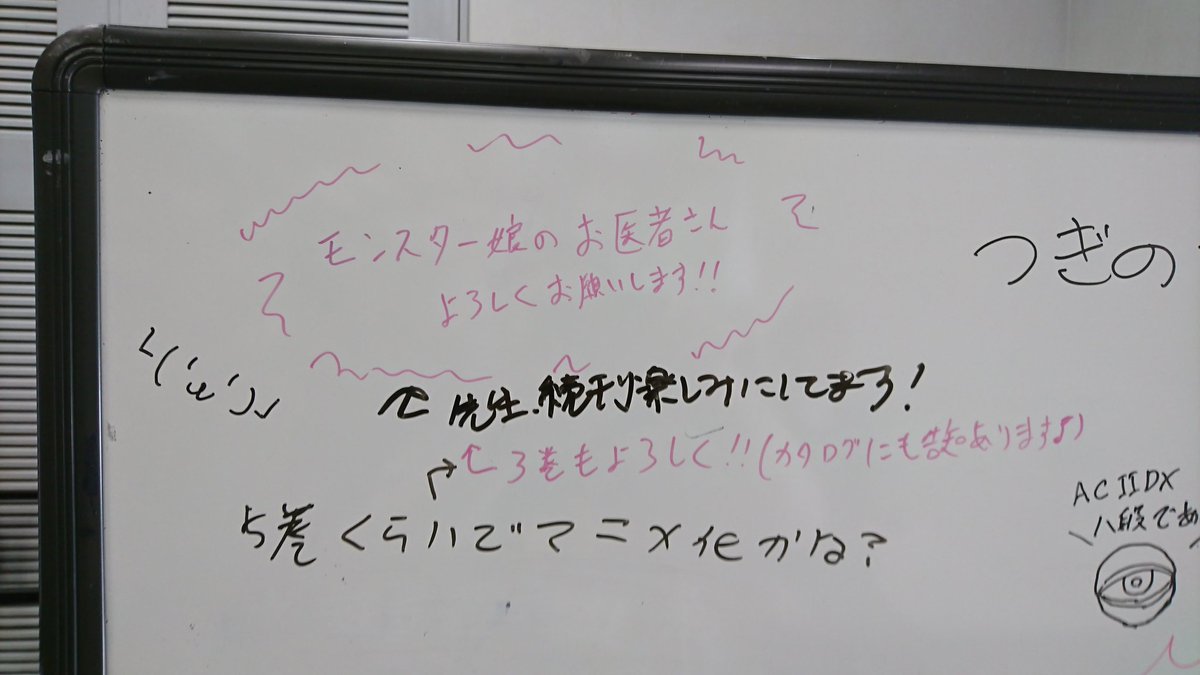 モンスター娘のお医者さん
よろしくお願いします!!
先生、続刊楽しみにしてまろ!
↑3巻もよろしく!!(カタログにも告知あります♪)
5巻くらいでアニメ化かな?
つぎの
AC IIDX
八段であ